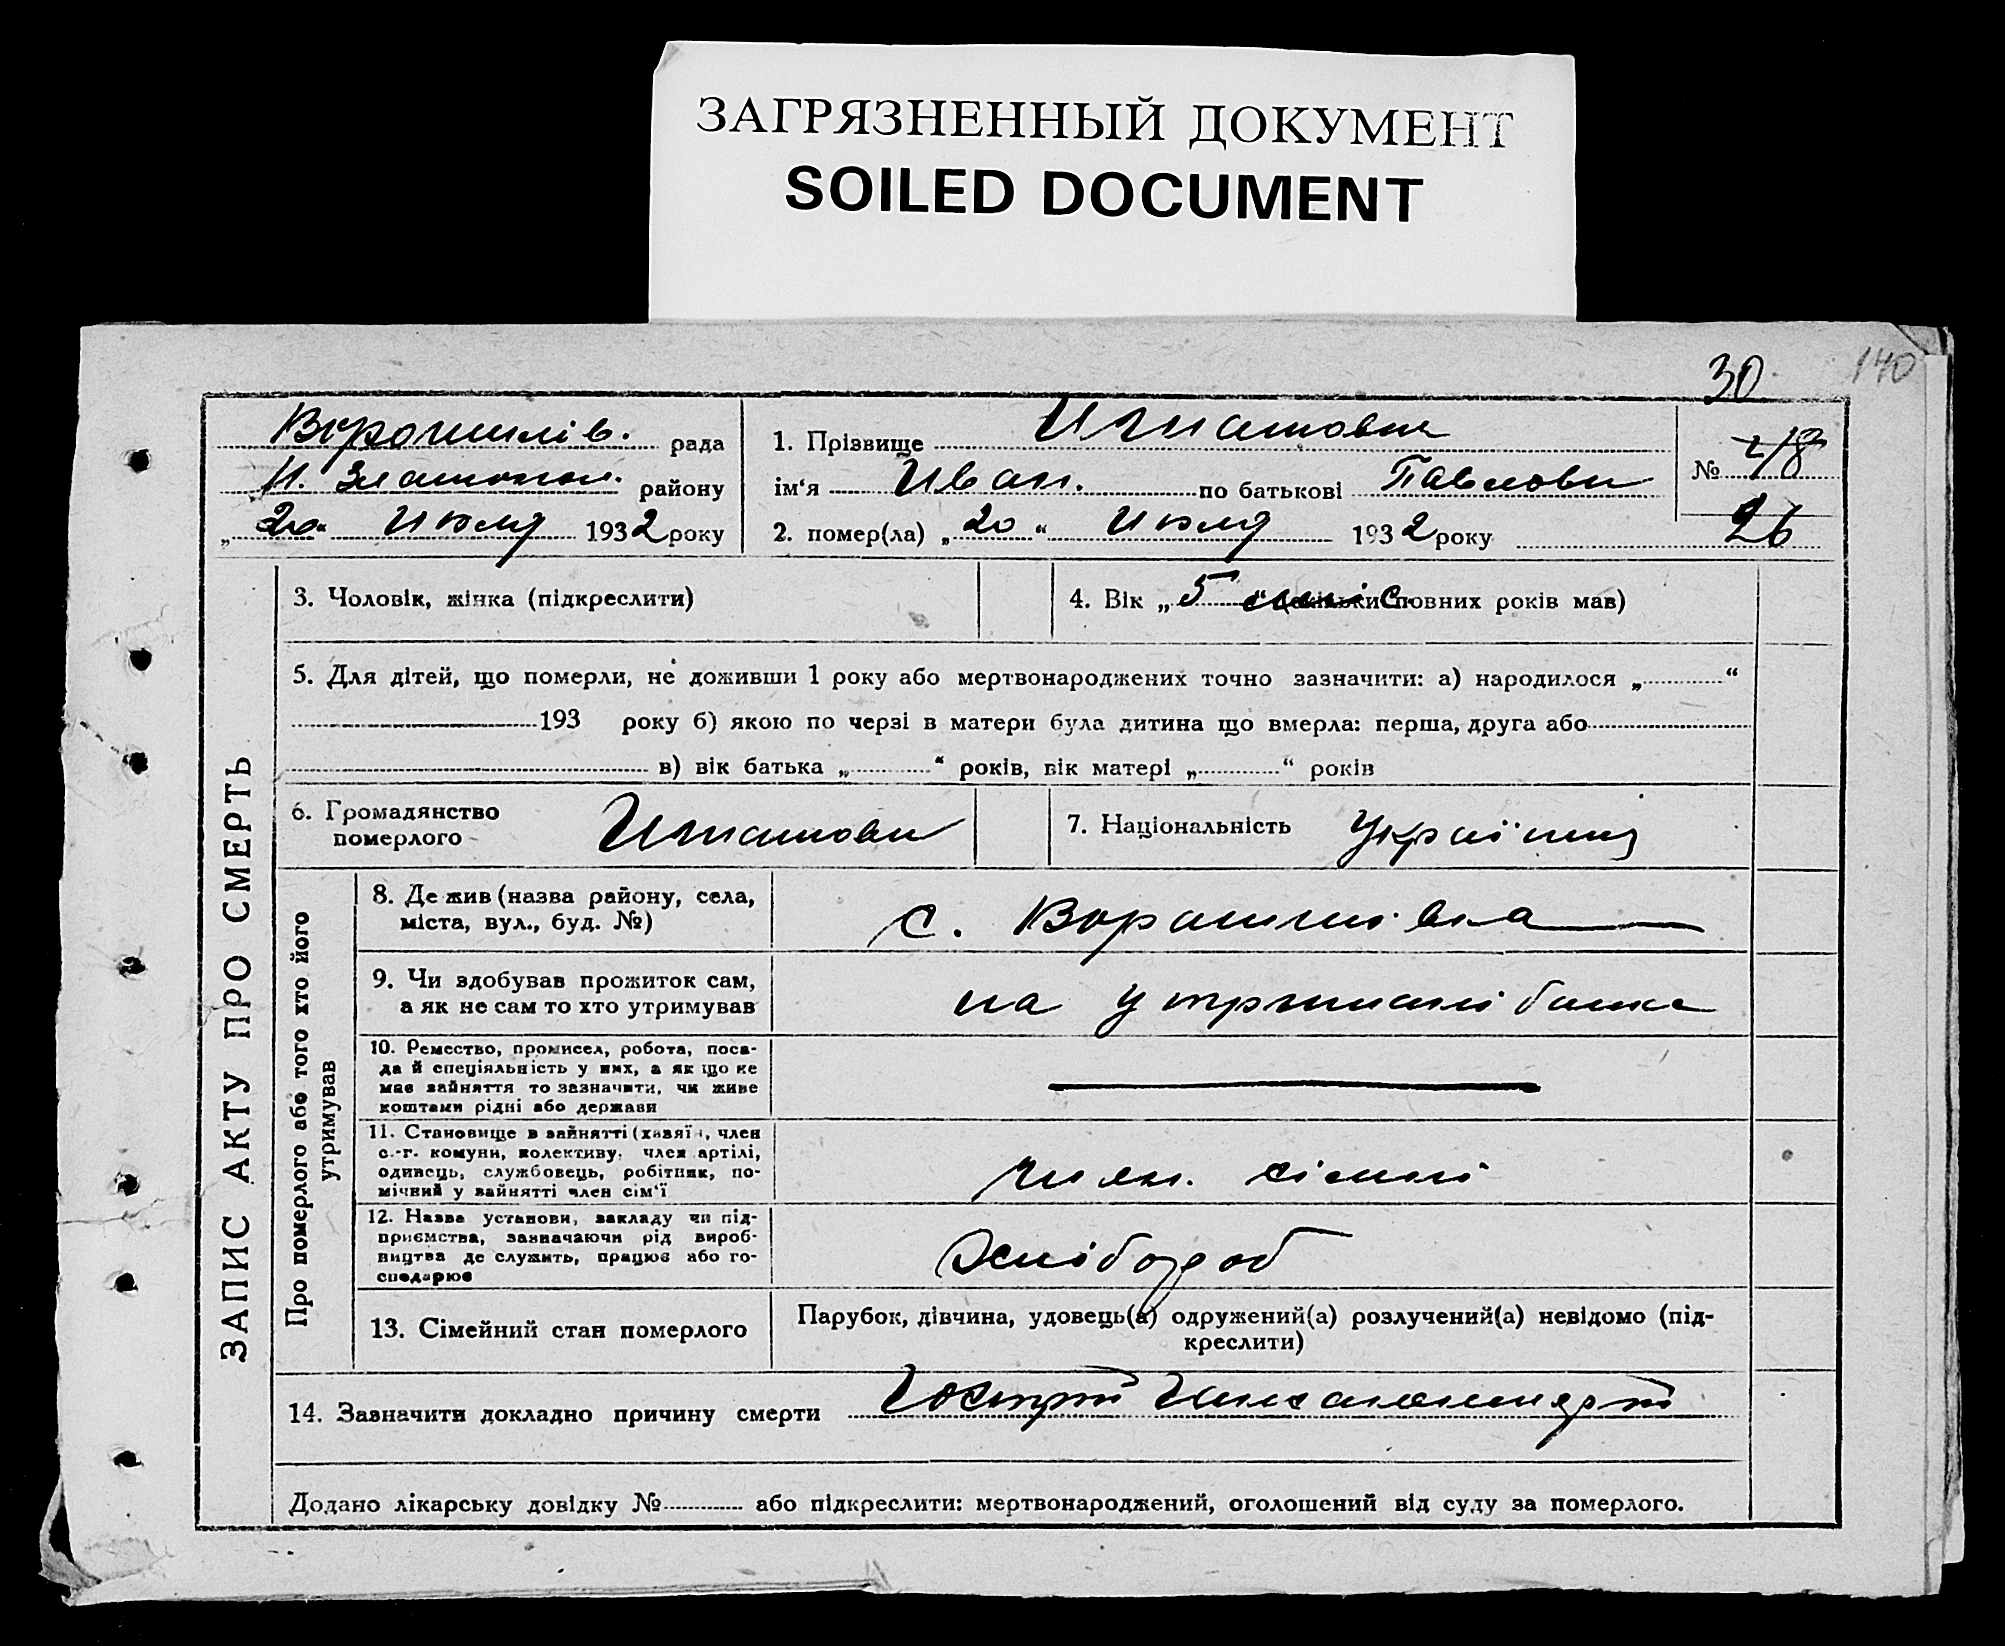 ЗАГРЯЗНЕННЫЙ ДОКУМЕНТ
SOILED DOCUMENT
30 140
Ворошилів. рада
району
„20“ Июля 1932 року
1. Прізвище
ім‘я Иван. по батькові Павлович
2. помер(ла) „20“ Июля 1932 року
№
26
ЗАПИС АКТУ ПРО СМЕРТЬ
3. Чоловік, жінка (підкреслити)
4. Вік „5 міс. (скільки повних років мав)
5. Для дітей, що померли, не доживши 1 року або мертвонароджених точно зазначити: а) народилося „ “
193 року б) якою по черзі в матери була дитина що вмерла: перша, друга або
в) вік батька „ “ років, вік матері „ “ років
6. Громадянство
померлого
7. Національність
Про померлого або того хто його
утримував
8. Де жив (назва району, села,
міста, вул., буд. №)
с.
9. Чи здобував прожиток сам,
а як не сам то хто утримував
на утриманні батька
10. Ремество, промисел, робота, поса-
да й спеціяльність у них, а як що не
має зайняття то зазначити, чи живе
коштами рідні або держави
11. Становище в зайнятті (хазяїн, член
с.-г. комуни, колективу, член артілі,
одивець, службовець, робітник, по-
мічний у зайнятті член сім‘ї
член. сімьі
12. Назва установи, закладу чи під-
приємства, зазначаючи рід вироб-
ництва де служить, працює або го-
сподарює
Хлібороб
13. Сімейний стан померлого
Парубок, дівчина, удовець(а) одружений(а) розлучений(а) невідомо (під-
креслити)
14. Зазначити докладно причину смерти
Додано лікарську довідку № або підкреслити: мертвонароджений, оголошений від суду за померлого.